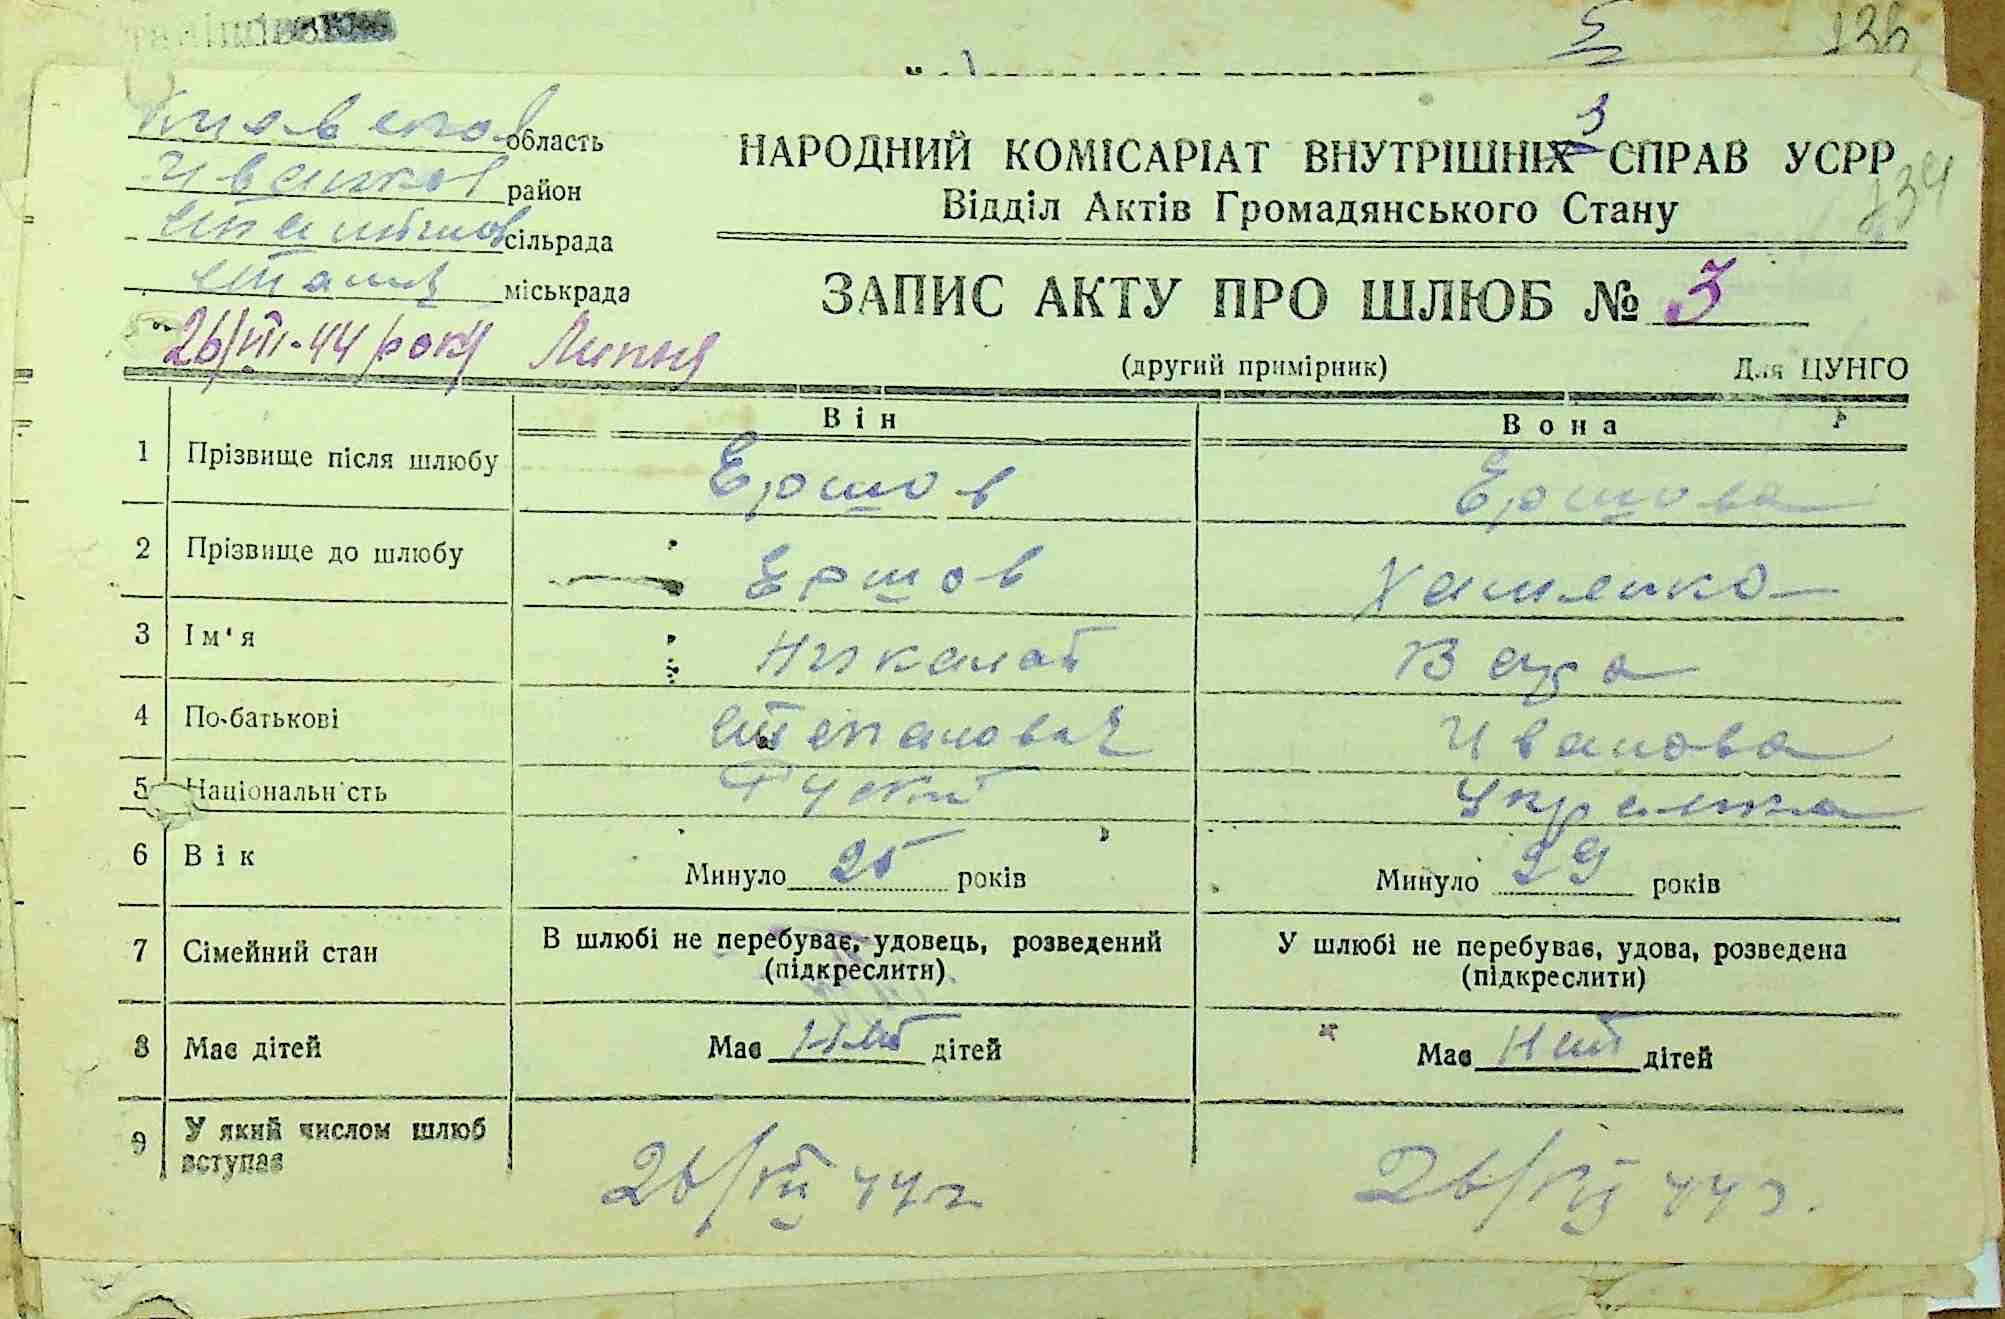 5
136
3
134
Киевской область
Иванков район
сільрада
міськрада
НАРОДНИЙ КОМІСАРІАТ ВНУТРІШНІХ СПРАВ УСРР
Відділ Актів Громадянського Стану
ЗАПИС АКТУ ПРО ШЛЮБ № 3
26/VII-44 року Липня
(другий примірник) Для ЦУНГО
Він Вона
1 Прізвище після шлюбу Ершов Ершова
2 Прізвище до шлюбу Ершов
3 Ім'я Николай Вера
4 По-батькові Степанович Иванова
5 Національність Руский Украинка
6 Вік Минуло 25 років Минуло 29 років
7 Сімейний стан В шлюбі не перебуває, удовець, розведений (підкреслити) У шлюбі не перебуває, удова, розведена (підкреслити)
8 Має дітей Має Нет дітей Має Нет дітей
9 У який числом шлюб вступає 26/VII 44 г. 26/VII 44 г.